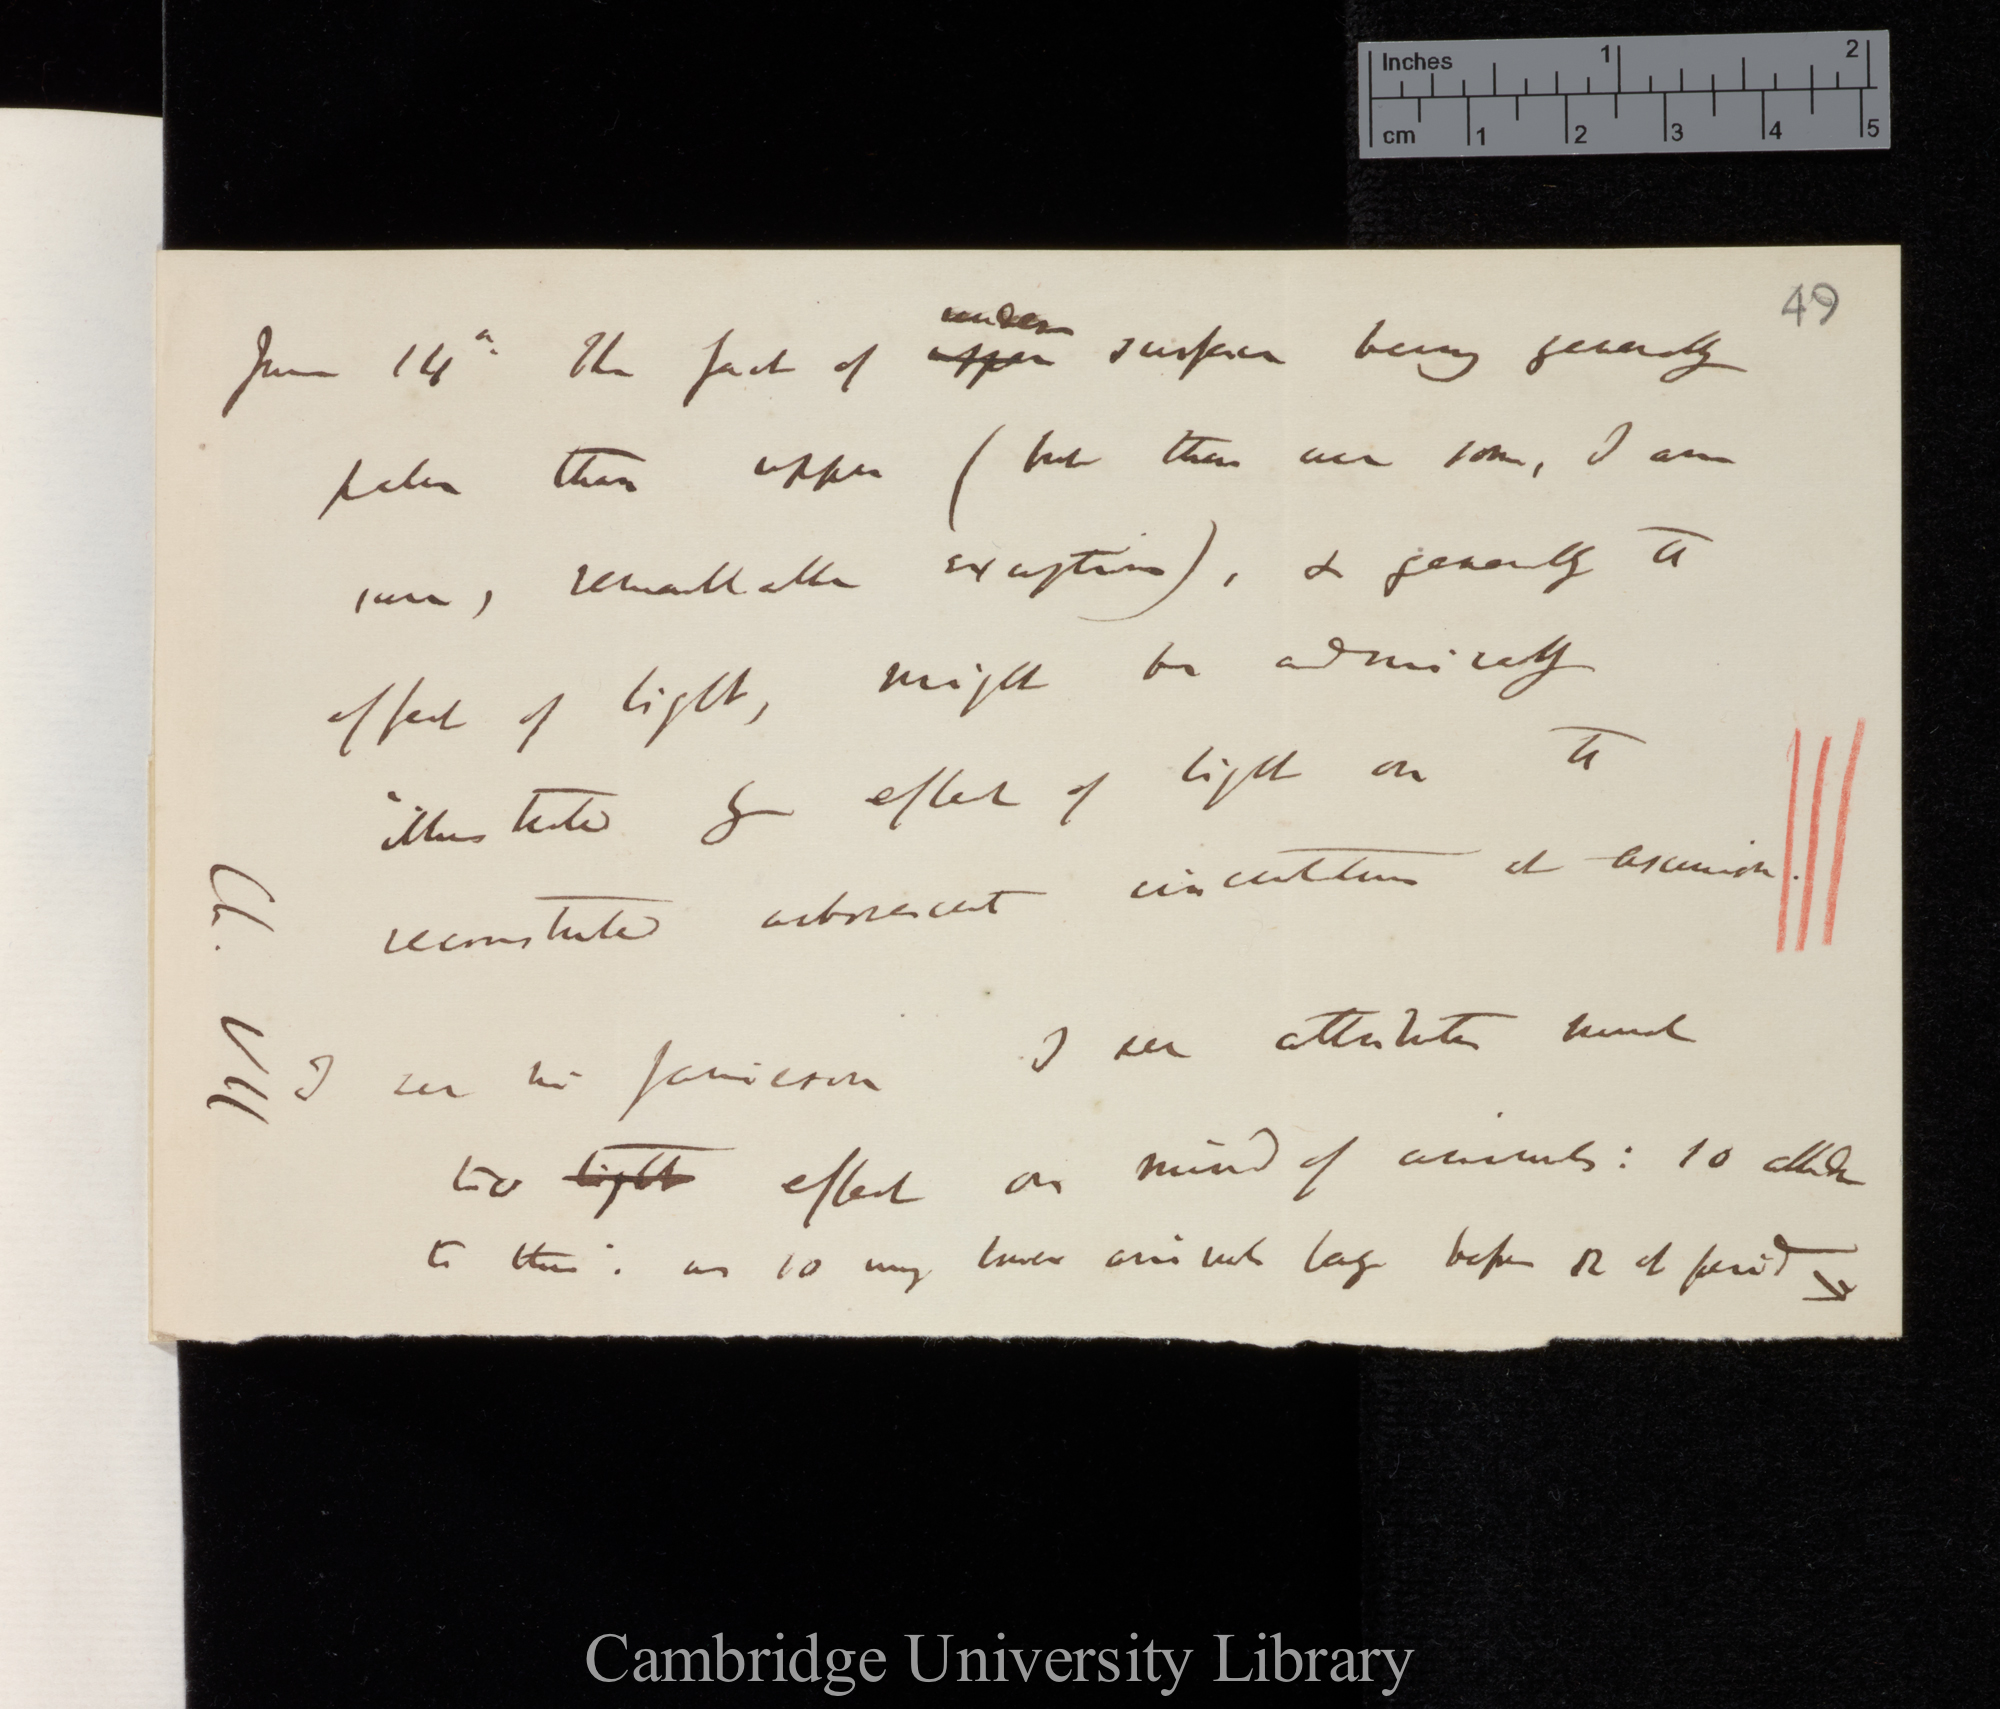 Inches 1 2
cm 1 2 3 4 5
49
under
June 14th. The fact of upper surface being generally
paler than upper (but there are some, I am
sure, remarkable exceptions), & generally the
effect of light, might be admirably
illustrated by effect of light on the
reconstituted arborescent incrustations at Ascension.
Ch. VII
I see in Jamieson I see attributes much
too light effect on mind of animals: to allude
to this: as so many lower animals large before at period
Cambridge University Library